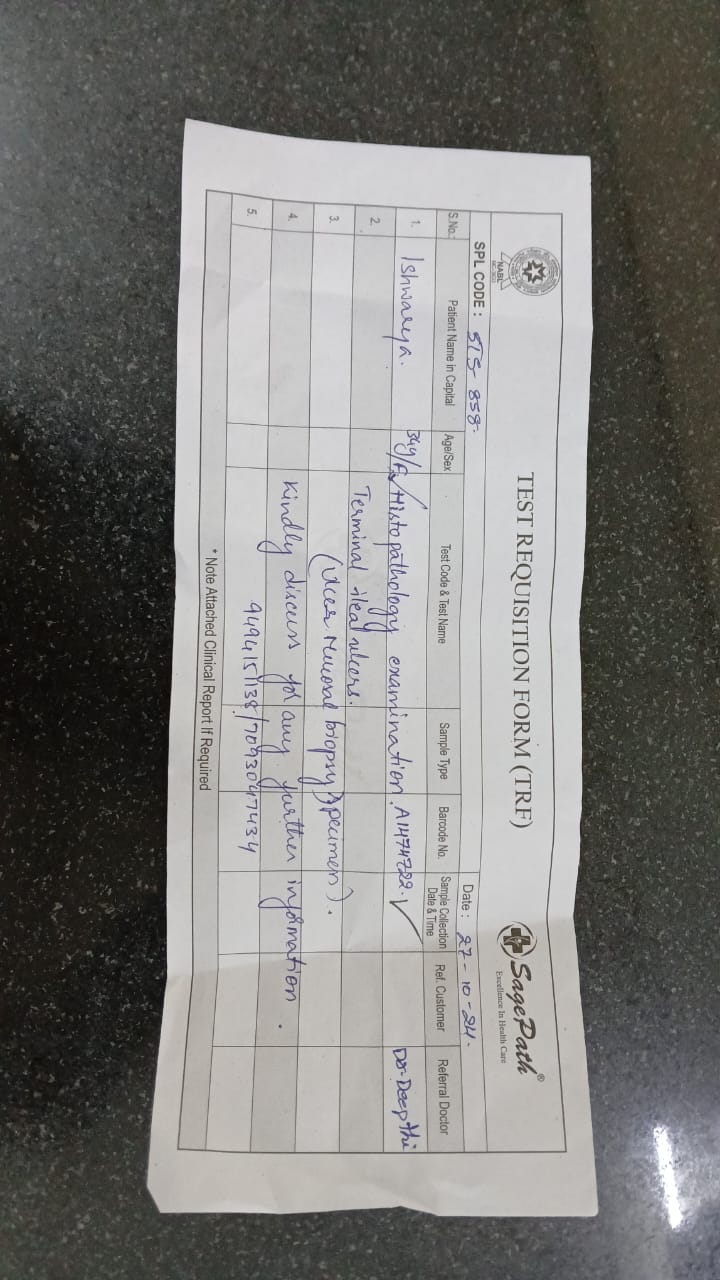 NABL
TEST REQUISITION FORM (TRF)
SagePath®
Excellence In Health Care
SPL CODE : STS-858.
Date : 27-10-24.
S.No. Patient Name in Capital Age/Sex Test Code & Test Name Sample Type Barcode No. Sample Collection Date & Time Ref. Customer Referral Doctor
1. Ishwarya. 34y/F Histopathology examination. A1474722. ✓ Dr. Deepthi
2. Terminal ileal ulcers.
3. (Ulcer mucosal biopsy specimen).
4. Kindly discuss for any further information.
5. 9494151138/7093047434
* Note Attached Clinical Report If Required